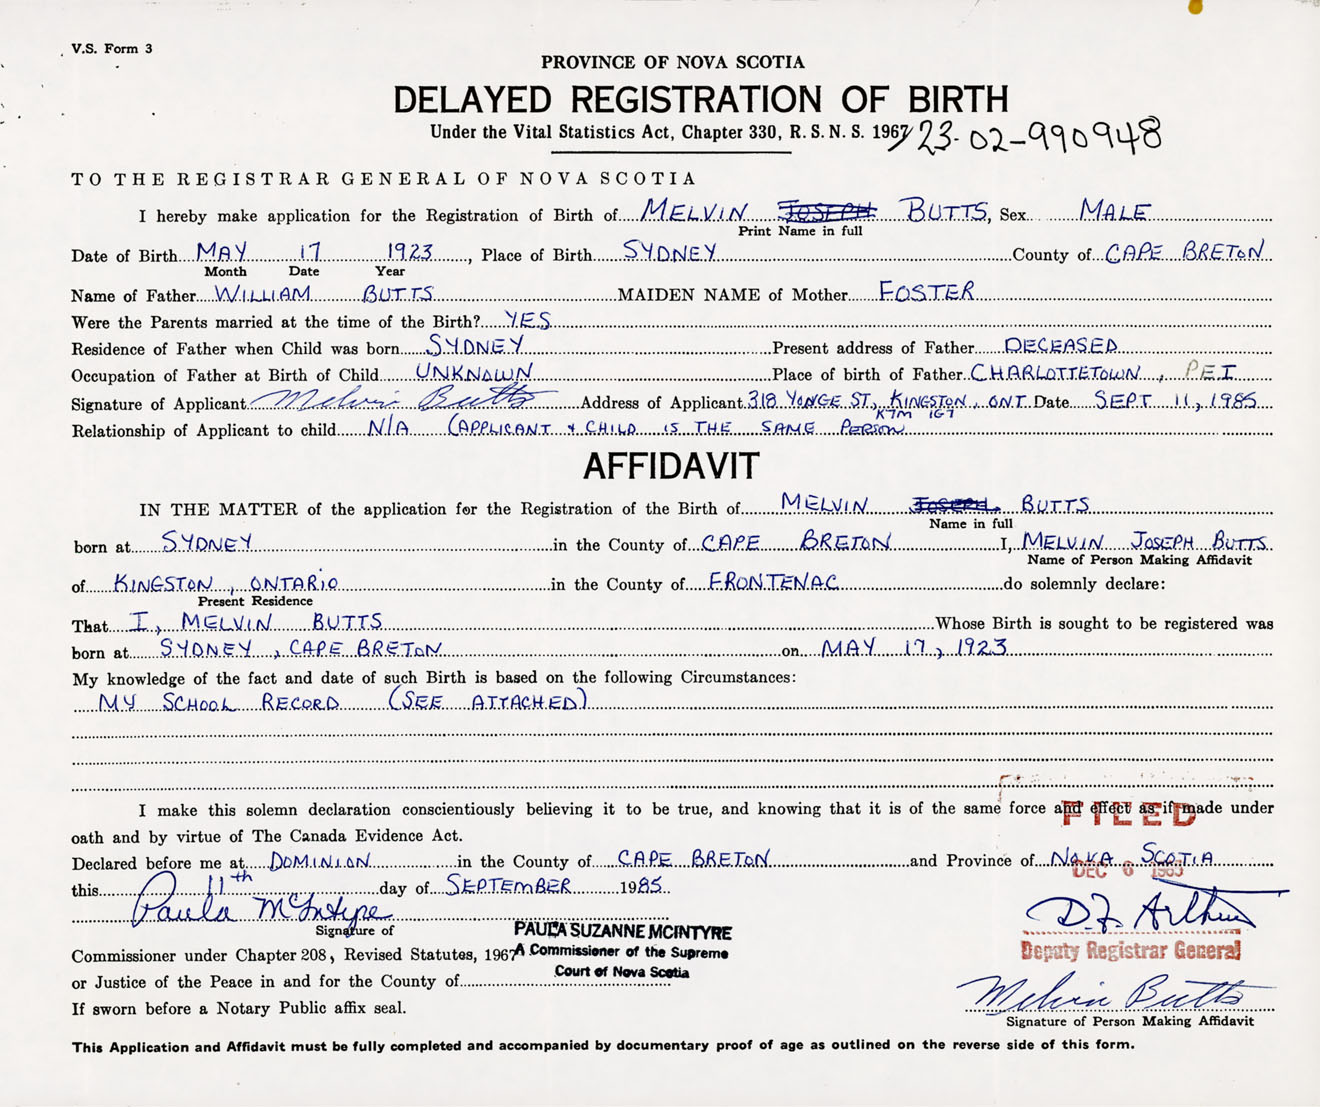 V.S. Form 3
PROVINCE OF NOVA SCOTIA
DELAYED REGISTRATION OF BIRTH
Under the Vital Statistics Act, Chapter 330, R. S. N. S. 1967
1923-02-990948
TO THE REGISTRAR GENERAL OF NOVA SCOTIA
I hereby make application for the Registration of Birth of MELVIN JOSEPH BUTTS, Sex MALE
Print Name in full
Date of Birth MAY 17 1923, Place of Birth SYDNEY County of CAPE BRETON
Month Date Year
Name of Father WILLIAM BUTTS MAIDEN NAME of Mother FOSTER
Were the Parents married at the time of the Birth? YES
Residence of Father when Child was born SYDNEY Present address of Father DECEASED
Occupation of Father at Birth of Child UNKNOWN Place of birth of Father CHARLOTTETOWN, PEI
Signature of Applicant Melvin Butts Address of Applicant 318 YONGE ST, KINGSTON, ONT. Date SEPT 11, 1985
K7M 1G7
Relationship of Applicant to child N/A (APPLICANT & CHILD IS THE SAME PERSON
AFFIDAVIT
IN THE MATTER of the application for the Registration of the Birth of MELVIN JOSEPH BUTTS
Name in full
born at SYDNEY in the County of CAPE BRETON I, MELVIN JOSEPH BUTTS
Name of Person Making Affidavit
of KINGSTON, ONTARIO in the County of FRONTENAC do solemnly declare:
Present Residence
That I, MELVIN BUTTS Whose Birth is sought to be registered was
born at SYDNEY, CAPE BRETON on MAY 17, 1923
My knowledge of the fact and date of such Birth is based on the following Circumstances:
MY SCHOOL RECORD (SEE ATTACHED)
I make this solemn declaration conscientiously believing it to be true, and knowing that it is of the same force and effect as if made under
FILED
oath and by virtue of The Canada Evidence Act.
Declared before me at DOMINION in the County of CAPE BRETON and Province of NOVA SCOTIA
DEC 6 1985
this 11th day of SEPTEMBER 1985
Paula McIntyre
D.F. Arthur
Signature of
PAULA SUZANNE MCINTYRE
A Commissioner of the Supreme
Court of Nova Scotia
Deputy Registrar General
Commissioner under Chapter 208, Revised Statutes, 1967
or Justice of the Peace in and for the County of
Melvin Butts
If sworn before a Notary Public affix seal.
Signature of Person Making Affidavit
This Application and Affidavit must be fully completed and accompanied by documentary proof of age as outlined on the reverse side of this form.